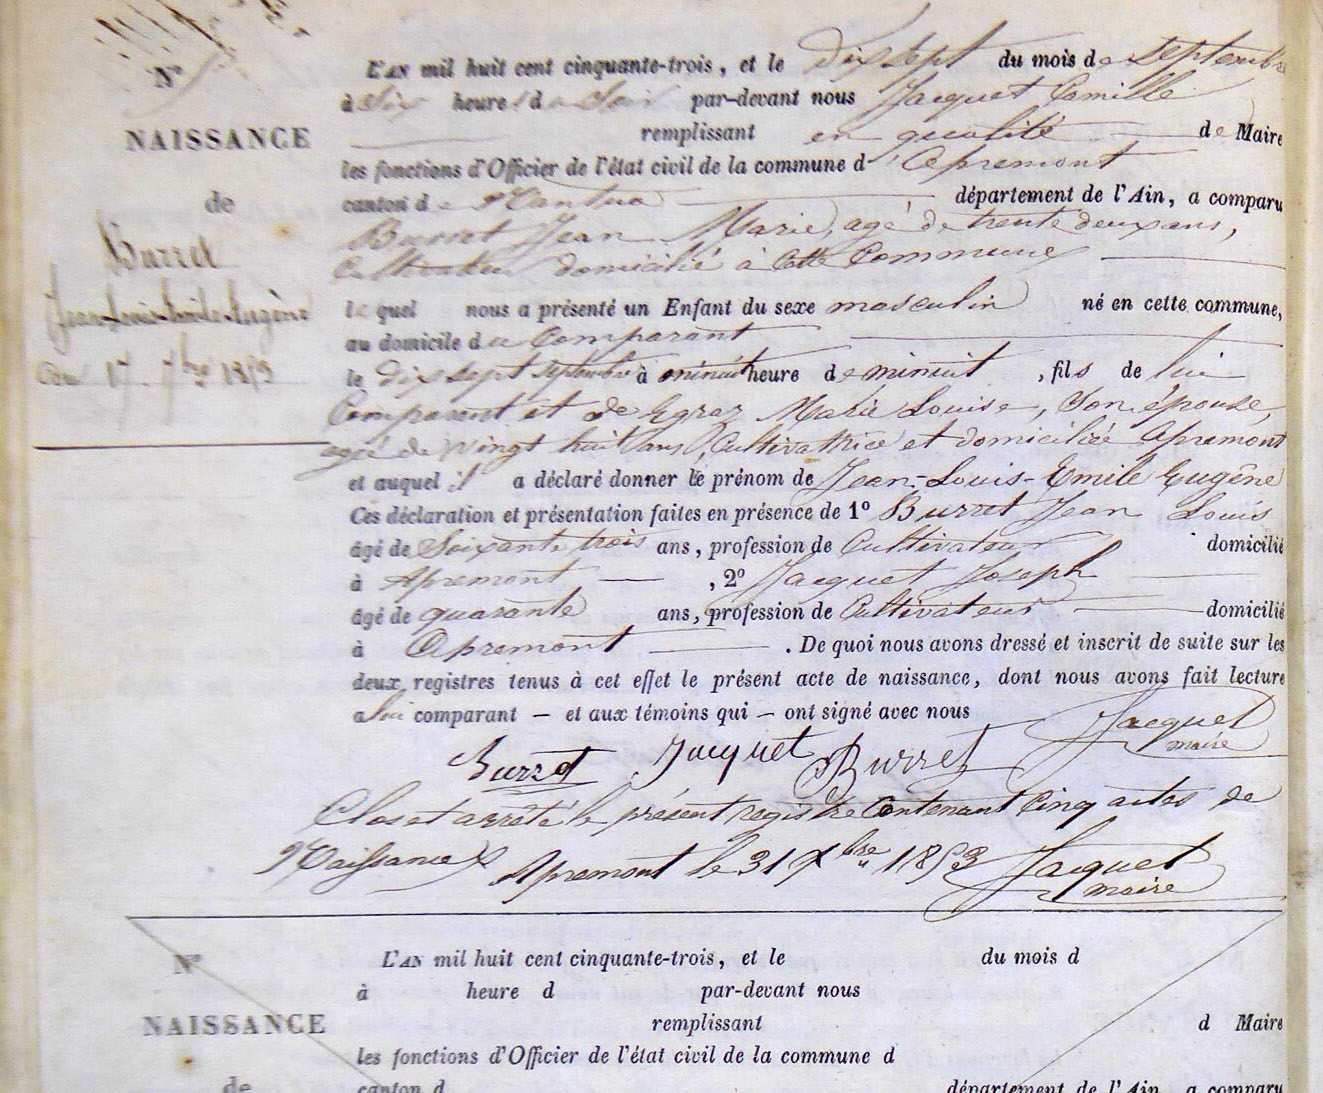 N°
NAISSANCE
de
Burret
Jean Louis Emile Eugène
17 7bre 1853
L'AN mil huit cent cinquante-trois, et le dix sept du mois de septembre
à six heures du soir par-devant nous Jacquet Camille
remplissant en qualité de Maire
les fonctions d'Officier de l'état civil de la commune d'Apremont
canton de Nantua département de l'Ain, a comparu
Burret Jean Marie, agé de trente deux ans,
Cultivateur domicilié à Cette Commune
lequel nous a présenté un Enfant du sexe masculin né en cette commune,
au domicile du Comparant
le dix sept septembre à minuit heure de minuit, fils de lui
Comparant et de Egraz Marie Louise, Son épouse,
agée de vingt huit ans, Cultivatrice et domiciliée Apremont
et auquel il a déclaré donner le prénom de Jean-Louis-Emile Eugêne
Ces déclaration et présentation faites en présence de 1° Burret Jean Louis
âgé de Soixante trois ans, profession de Cultivateur domicilié
à Apremont, 2° Jacquet Joseph
âgé de quarante ans, profession de Cultivateur domicilié
à Apremont. De quoi nous avons dressé et inscrit de suite sur les
deux registres tenus à cet effet le présent acte de naissance, dont nous avons fait lecture
au comparant — et aux témoins qui — ont signé avec nous
Jacquet
maire
Burret Jacquet Burret
Clos et arrêté le présent registre Contenant Cinq actes de
Naissances Apremont le 31 Xbre 1853 Jacquet
maire
N°
NAISSANCE
de
L'AN mil huit cent cinquante-trois, et le du mois d
à heure d par-devant nous
remplissant d Maire
les fonctions d'Officier de l'état civil de la commune d
canton d département de l'Ain, a comparu